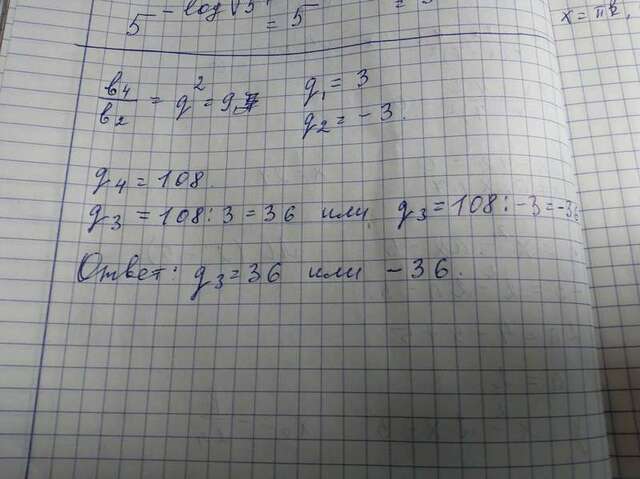 5 - log √5
= 5
x = πk,
в4/в2 = q² = 9, q₁ = 3
q₂ = -3.
q₄ = 108.
q₃ = 108 : 3 = 36 или q₃ = 108 : -3 = -36
Ответ: q₃ = 36 или - 36.